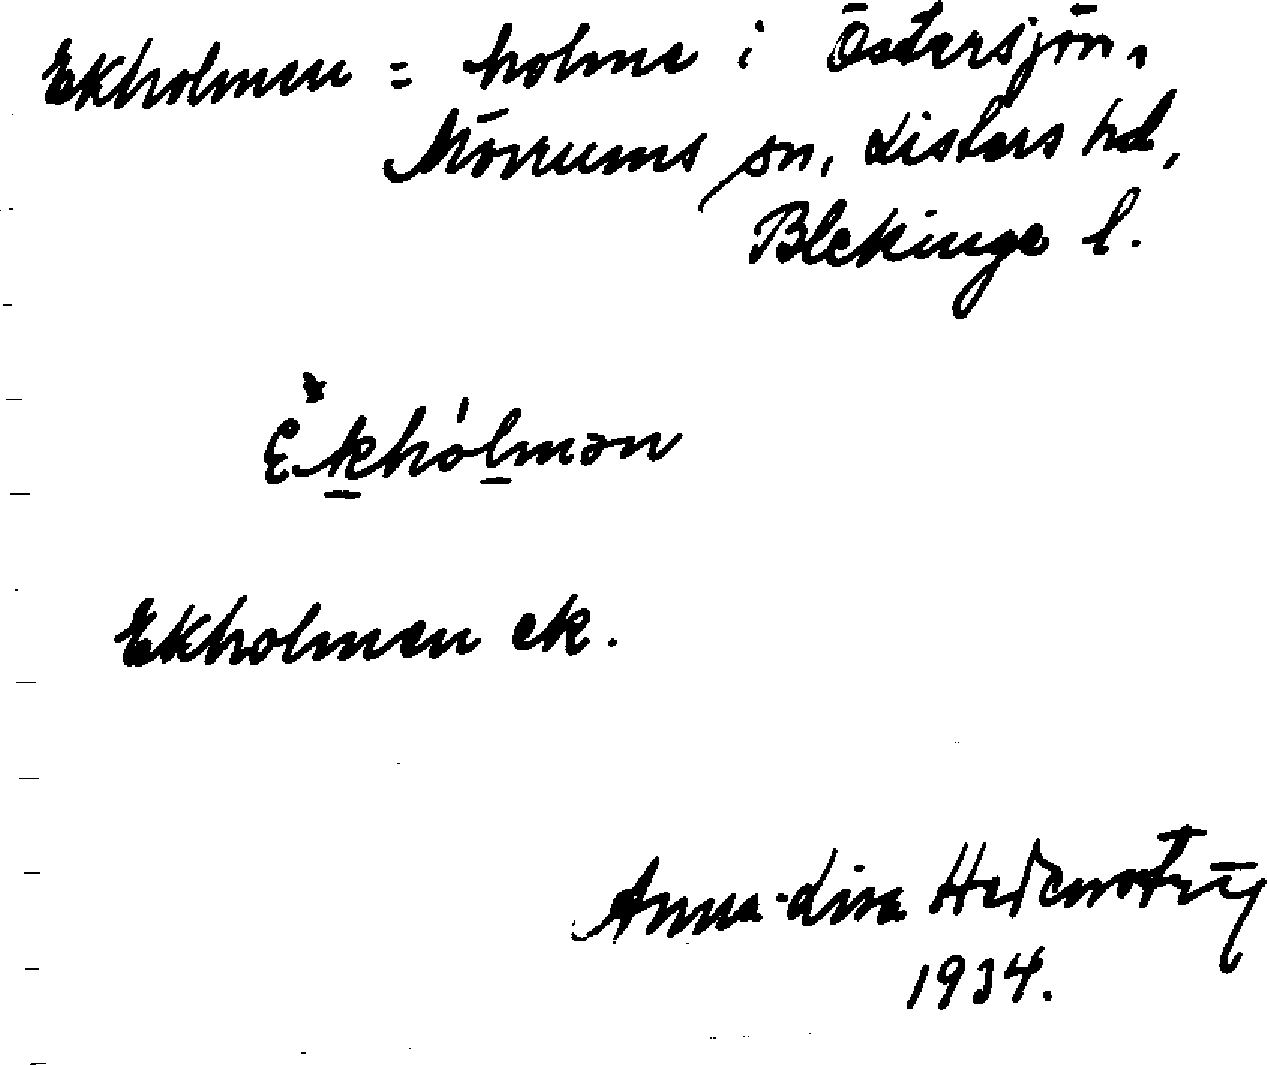 Ekholmen = holme i Östersjön,
Mörrums sn, Listers hd,
Blekinge l.
Ekholmen ek.
Anna-Lisa
1934.